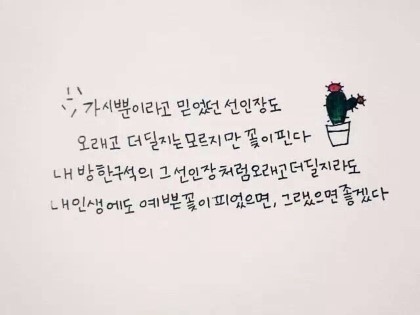 가시뿐이라고 믿었던 선인장도
오래고 더딜지는 모르지만 꽃이 핀다
내 방 한구석의 그 선인장처럼 오래고 더딜지라도
내 인생에도 예쁜 꽃이 피었으면, 그랬으면 좋겠다